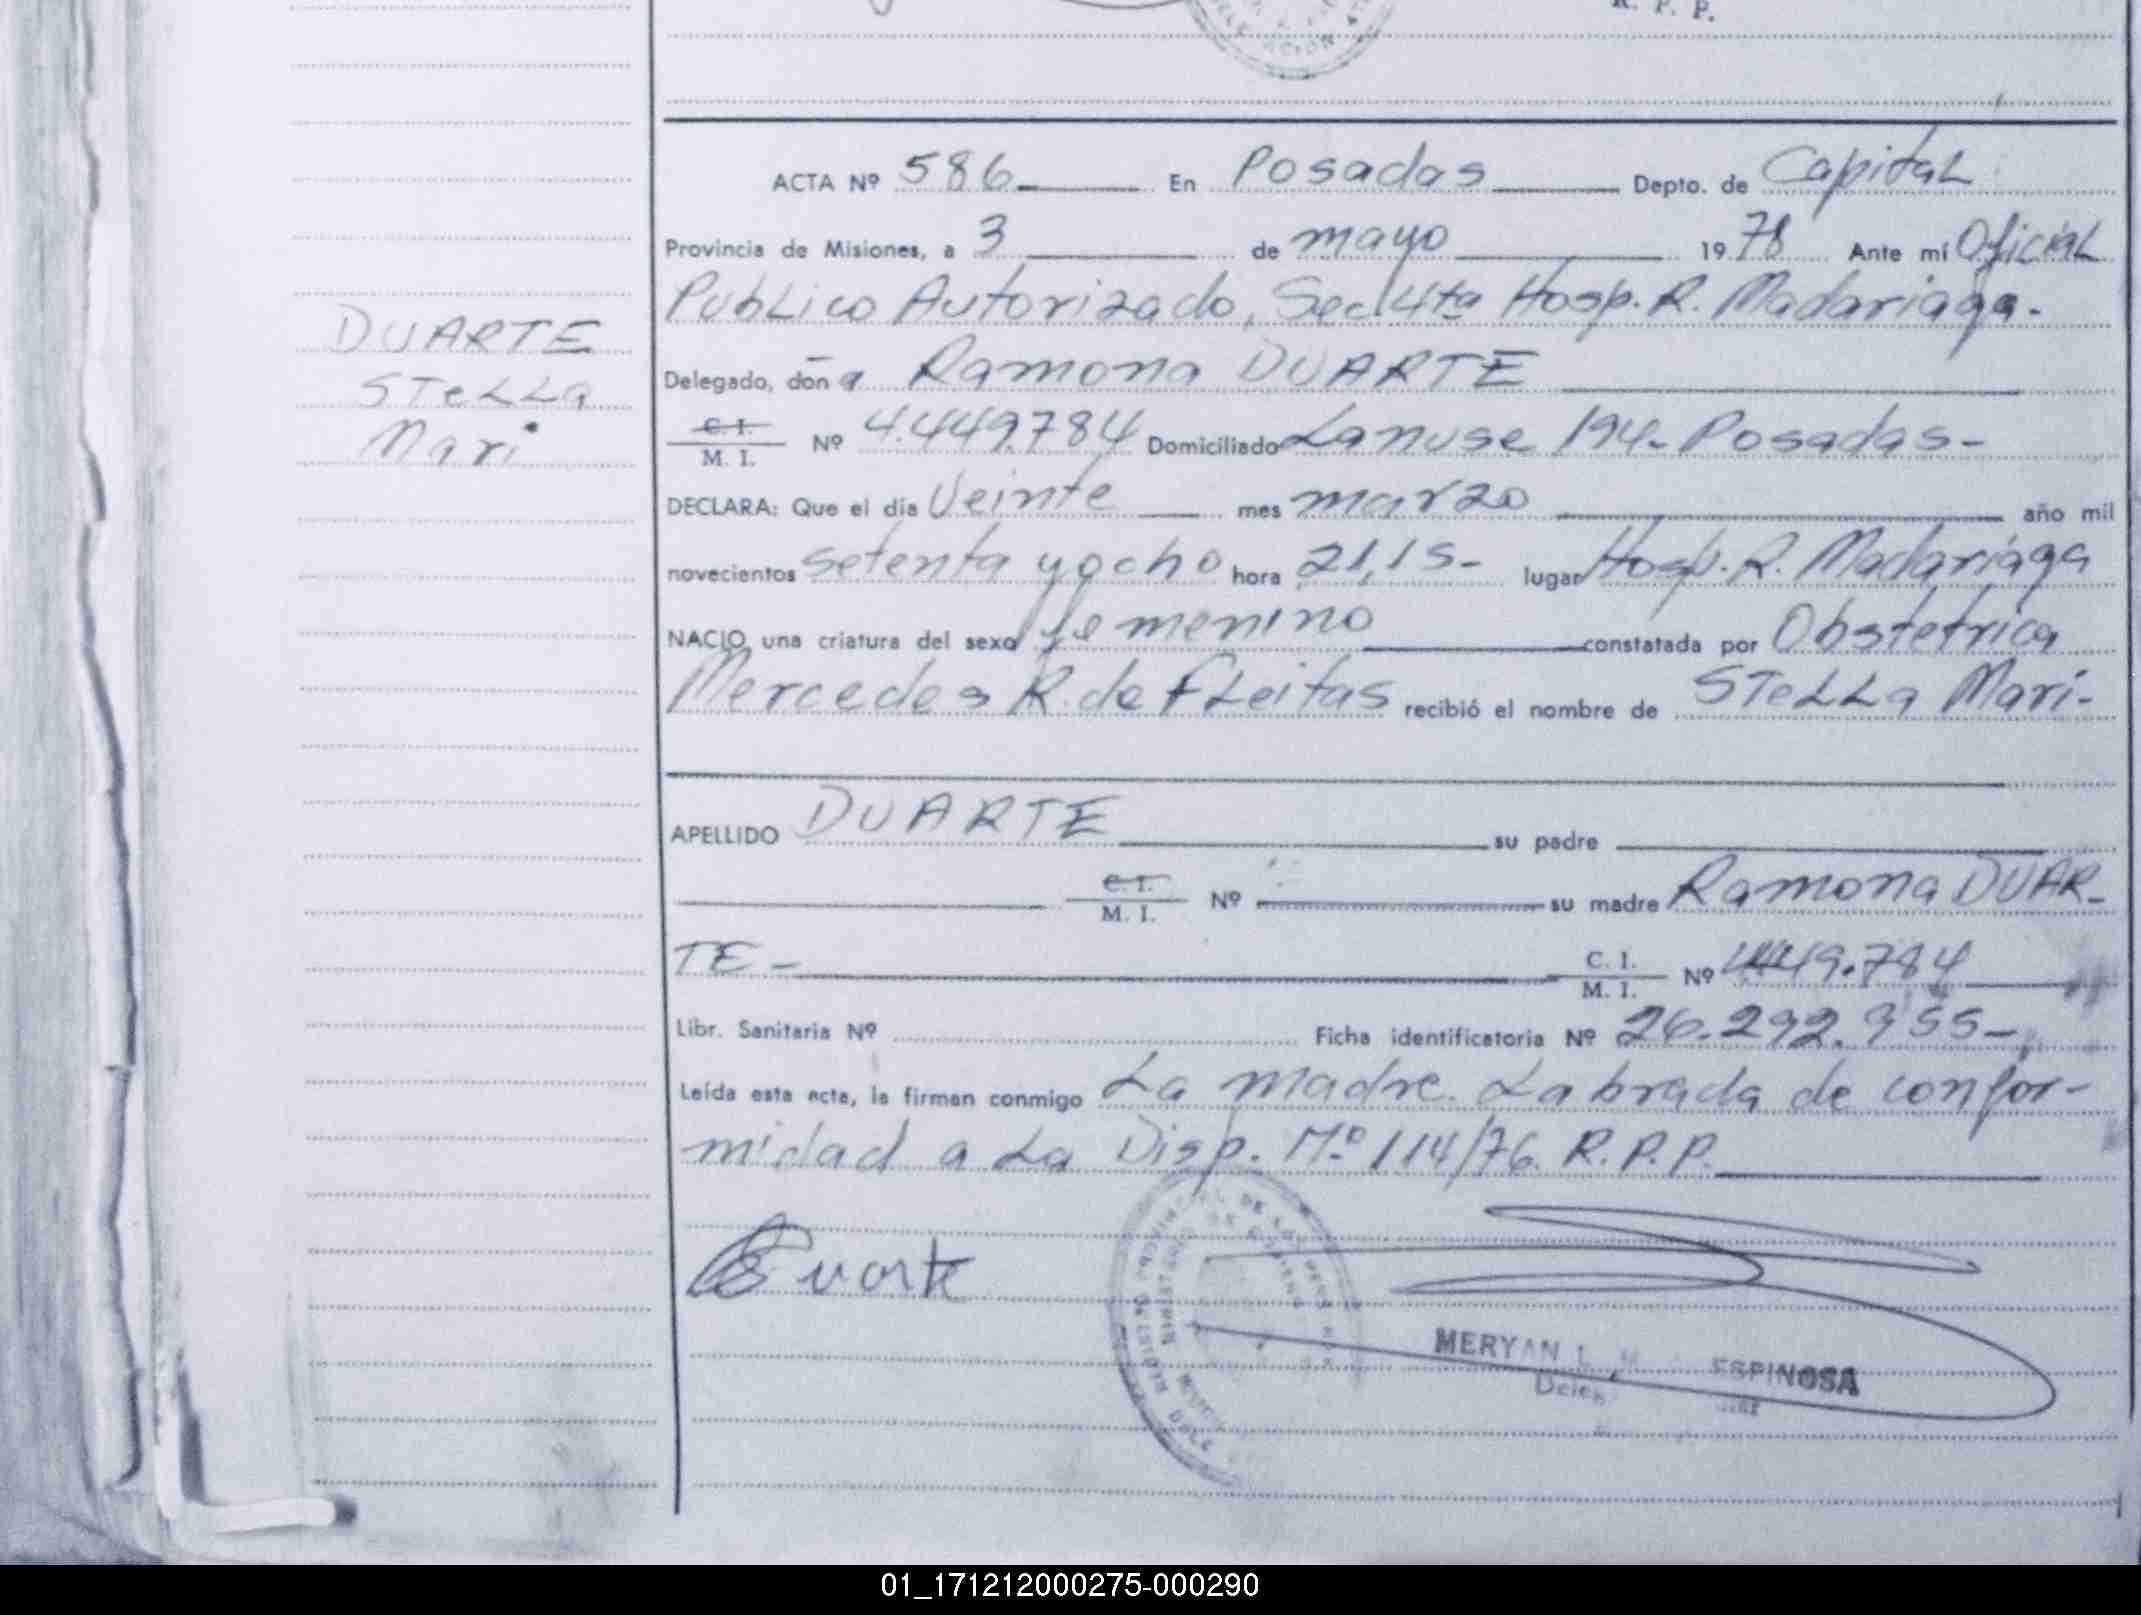 R. P. P.
ACTA Nº 586 En Posadas Depto. de Capital
Provincia de Misiones, a 3 de mayo 1978 Ante mí Oficial
Publico Autorizado, Sec 4ta Hosp. R. Madariaga.
Delegado, don a Ramona DUARTE
C. I.
M. I. Nº 4.449.784 Domiciliado Lanuse 194- Posadas-
DECLARA: Que el día Veinte mes marzo año mil
novecientos setenta y ocho hora 21,15- lugar Hosp. R. Madariaga
NACIO una criatura del sexo femenino constatada por Obstetrica
Mercedes R. de FLeitas recibió el nombre de STeLLa Mari-
APELLIDO DUARTE su padre
C. I.
M. I. Nº su madre Ramona DUAR-
TE - C. I.
M. I. Nº 4.449.784
Libr. Sanitaria Nº Ficha identificatoria Nº 26.292.955-
Leída esta acta, la firman conmigo La madre. Labrada de confor-
midad a La Disp. Nº 114/76. R.P.P.
Duarte
MERYAN ESPINOSA
DUARTE
STeLLa
Mari
01_171212000275-000290